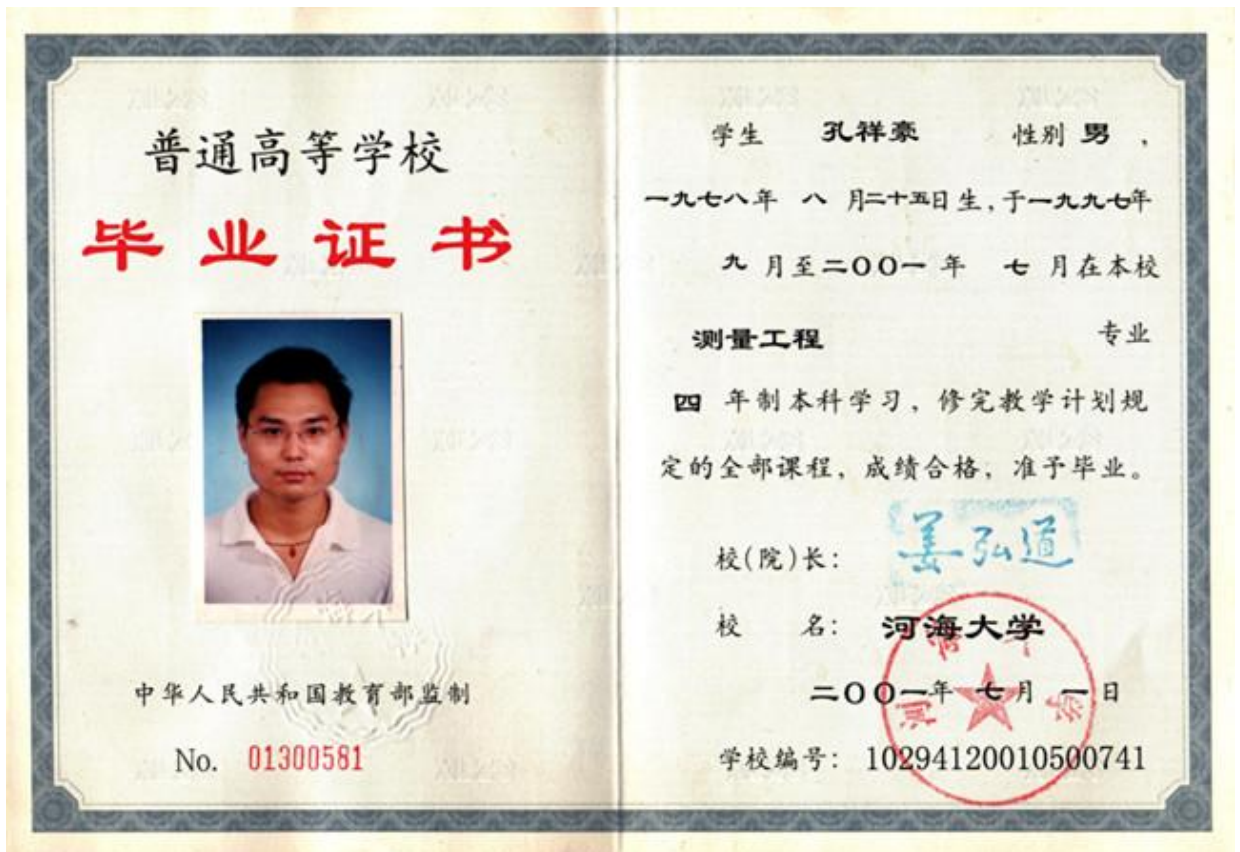 普通高等学校
毕业证书
中华人民共和国教育部监制
No. 01300581
学生 孔祥豪 性别 男，
一九七八年 八 月二十五日生，于一九九七年
九 月至二〇〇一 年 七 月在本校
测量工程 专业
四 年制本科学习，修完教学计划规
定的全部课程，成绩合格，准予毕业。
校(院)长： 姜弘道
校 名： 河海大学
二〇〇一年 七月 一日
学校编号： 10294120010500741